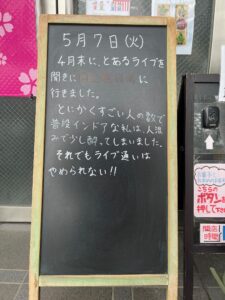 5月7日(火)
4月末に、とあるライブを
聞きに
に
行きました。
とにかくすごい人の数で
普段インドアな私は、人混
みで少し酔ってしまいました。
それでもライブ通いは
やめられない!!
こちらの
ボタンを
押して下さい